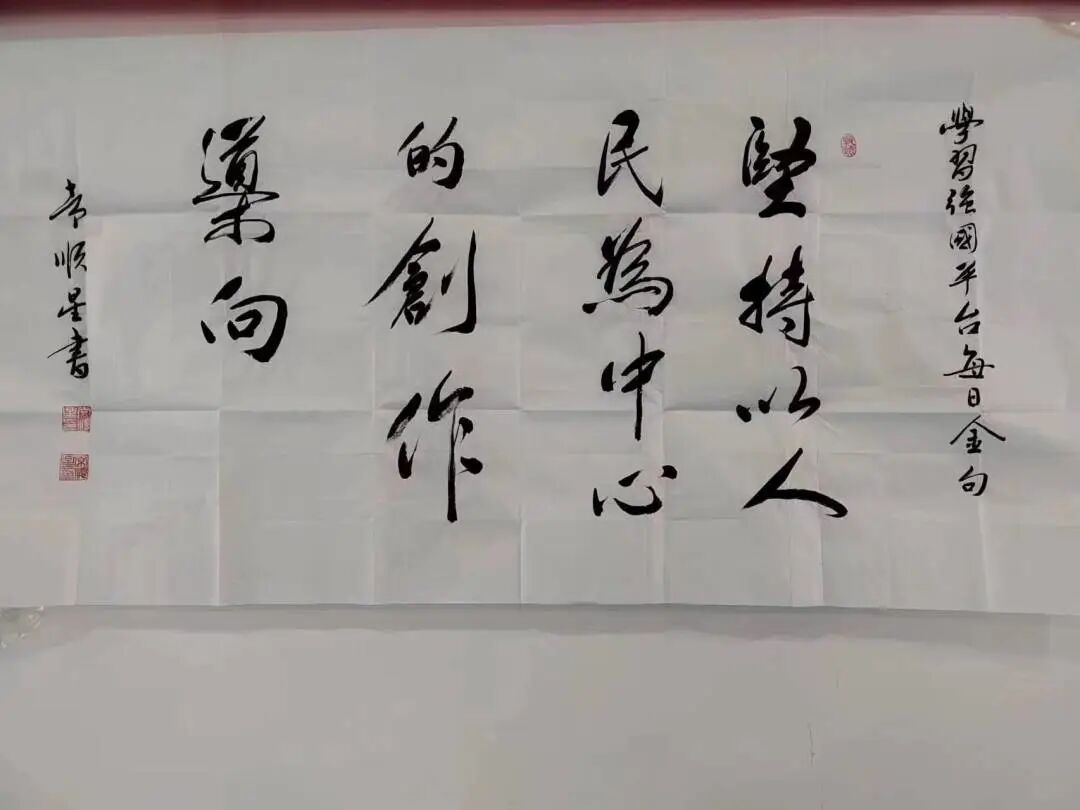 學習強國平台每日金句
堅持以人
民為中心
的創作
導向
順星書